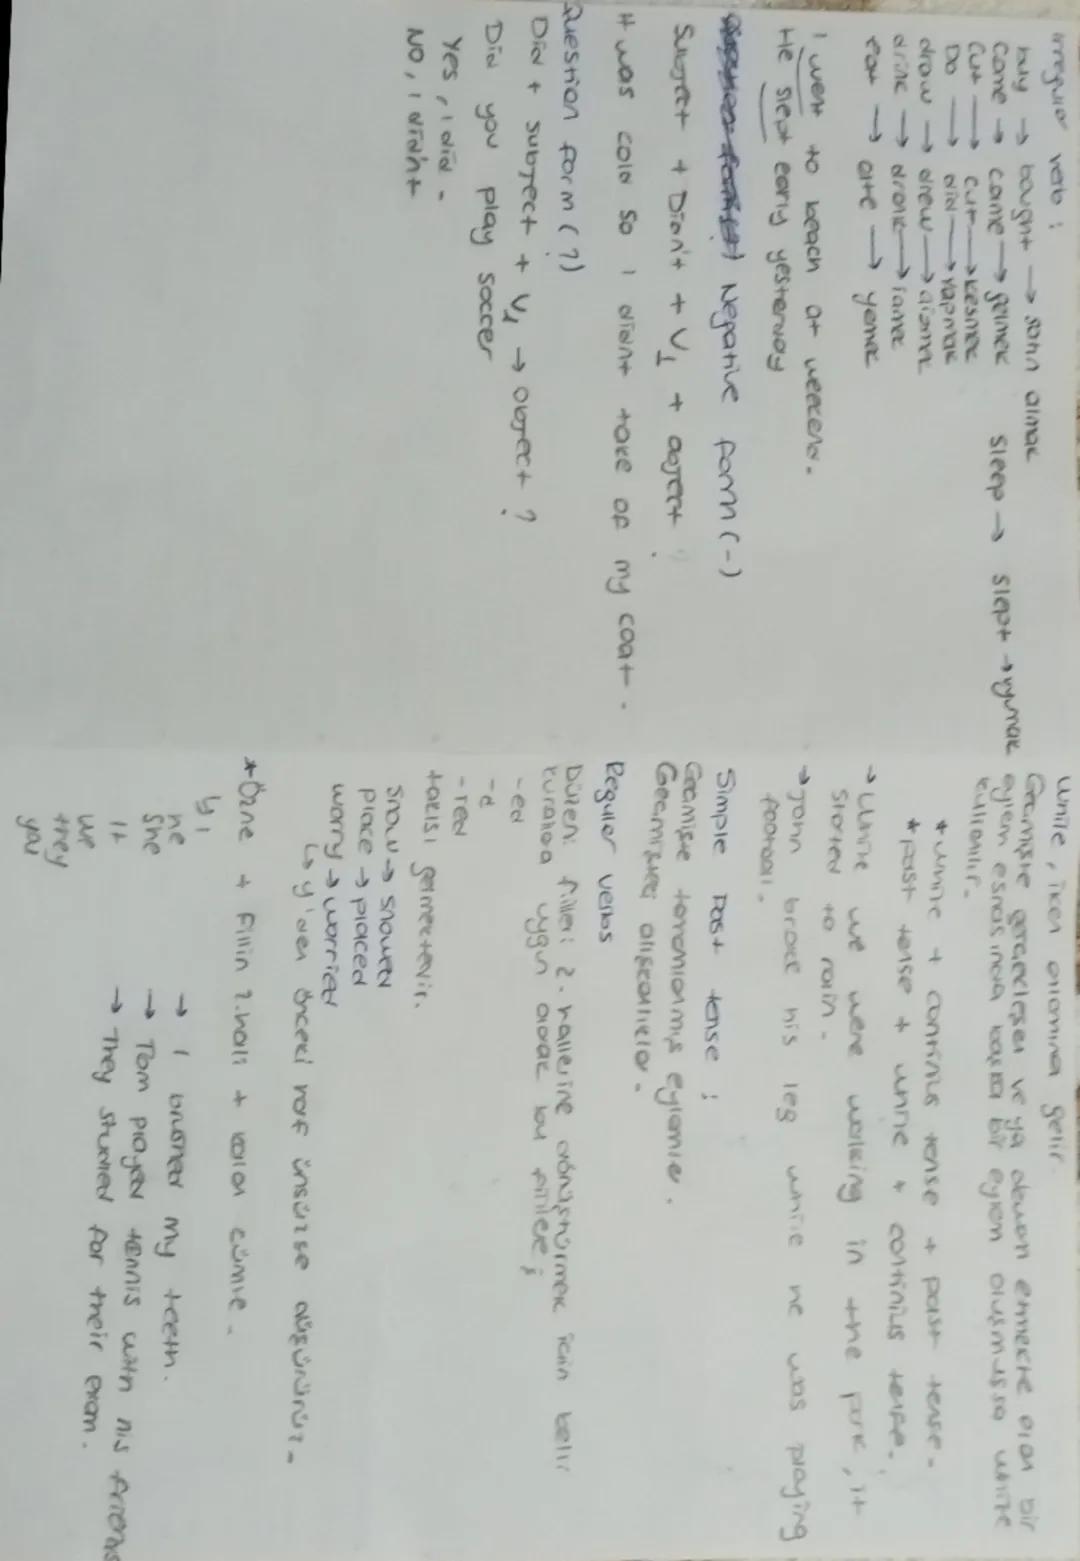 irregular verb :
buy → bought → satın almak
come → came → gelmek
cut → cut → kesmek
sleep → slept → uyumak
Do → did → yapmak
draw → drew → çizmek
drink → drank → içmek
eat → ate → yemek
I went to beach at weekend.
He slept early yesterday
Negative form (-)
Subject + Didn't + V1 + object
It was cold so I didnt take of my coat.
Question form (?)
Did + subject + V1 → object ?
Did you play soccer
Yes, I did.
No, I didn't
While, iken anlamına gelir.
Geçmişte gerçekleşen ve ya devam etmekte olan bir
eylem esnasında başka bir eylem oluşmuşsa while
kullanılır.
* while + continius tense + past tense.
* past tense + while + continius tense.
→ While we were walking in the park, it
started to rain.
→ John broke his leg while he was playing
football.
Simple past tense ;
Geçmişte tamamlanmış eylemler.
Geçmişteki alışkanlıklar.
Regular verbs
Düzenli fiilleri 2. hallerine dönüştürmek için belli
kurallara uygun olarak bu fiillere;
-ed
-d
-ied
takısı getirmekteyiz.
snow → snowed
place → placed
worry → worried
↳ y'den önceki harf ünsüzse düşürürüz.
* Özne + fiilin 2.hali + kalan cümle.
I
he
she
it
we
they
you
→ I brushed my teeth.
→ Tom played tennis with his friends
→ They studied for their exam.